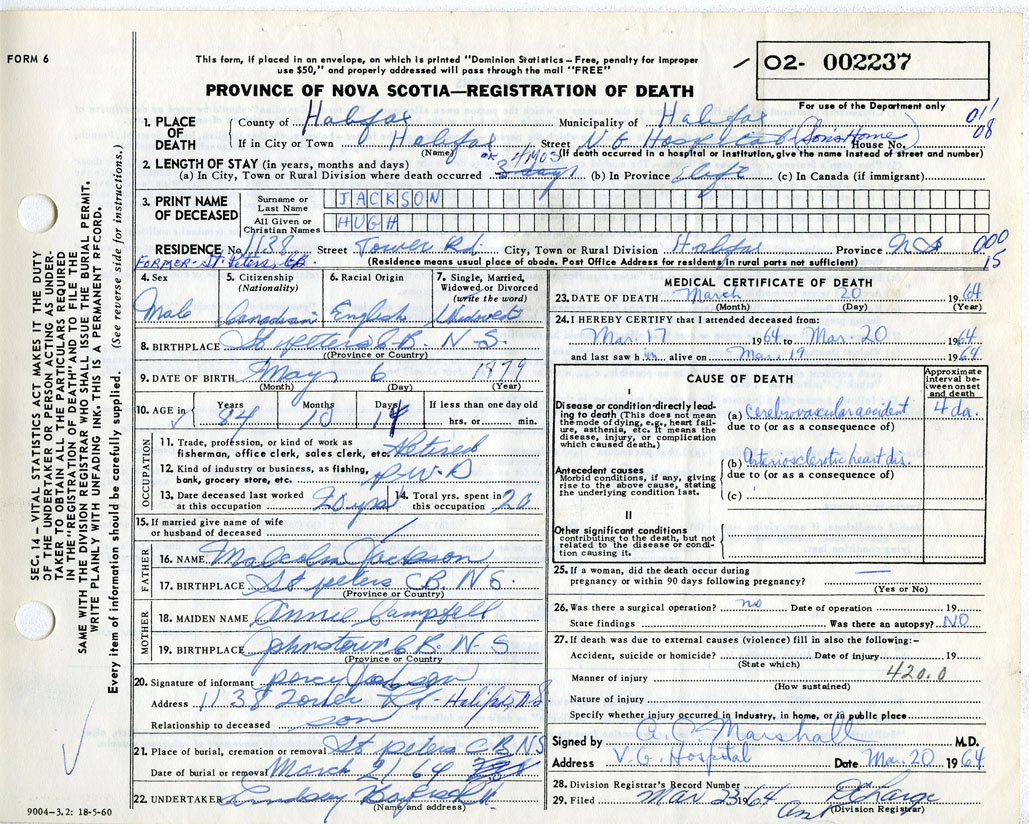 FORM 6
This form, if placed in an envelope, on which is printed "Dominion Statistics—Free, penalty for improper
use $50," and properly addressed will pass through the mail "FREE"
02- 002237
PROVINCE OF NOVA SCOTIA—REGISTRATION OF DEATH
For use of the Department only
1. PLACE OF DEATH
County of Halifax Municipality of Halifax 01'
If in City or Town Halifax Street V G Hospital (Sons Home) House No. 08
(Name) (If death occurred in a hospital or institution, give the name instead of street and number)
2. LENGTH OF STAY (in years, months and days)
(a) In City, Town or Rural Division where death occurred 3 days (b) In Province Life (c) In Canada (if immigrant)
3. PRINT NAME OF DECEASED
Surname or Last Name JACKSON
All Given or Christian Names HUGH
RESIDENCE No. 1138 Street Tower Rd. City, Town or Rural Division Halifax Province N S 000
FORMER - ST. Peters, CB (Residence means usual place of abode. Post Office Address for residents in rural parts not sufficient) 15
4. Sex Male
5. Citizenship (Nationality) Canadian
6. Racial Origin English
7. Single, Married, Widowed or Divorced (write the word) Widowed
8. BIRTHPLACE St Peters C.B. N-S.
(Province or Country)
9. DATE OF BIRTH May 6 1879
(Month) (Day) (Year)
10. AGE in Years 84 Months 10 Days 14 If less than one day old hrs. or min.
OCCUPATION
11. Trade, profession, or kind of work as
fisherman, office clerk, sales clerk, etc. Retired
12. Kind of industry or business, as fishing,
bank, grocery store, etc. P.W.D
13. Date deceased last worked
at this occupation
14. Total yrs. spent in
this occupation 20
15. If married give name of wife
or husband of deceased
FATHER
16. NAME Malcolm Jackson
17. BIRTHPLACE St peters CB. N S.
(Province or Country)
MOTHER
18. MAIDEN NAME Annie Campbell
19. BIRTHPLACE Johnstown C.B. N-S
(Province or Country
20. Signature of informant Jackson
Address 1138 Tower Rd - Halifax N.S
Relationship to deceased son
21. Place of burial, cremation or removal St peters C B. N S
Date of burial or removal March 21 64
22. UNDERTAKER Lindsay
(Name and address)
9004-3.2: 18-5-60
MEDICAL CERTIFICATE OF DEATH
23. DATE OF DEATH March 20 1964
(Month) (Day) (Year)
24. I HEREBY CERTIFY that I attended deceased from:
Mar. 17 1964 to Mar. 20 1964
and last saw him alive on Mar. 19 1964
CAUSE OF DEATH
Approximate interval between onset and death
I
Disease or condition directly leading to death (This does not mean the mode of dying, e.g., heart failure, asthenia, etc. It means the disease, injury, or complication which caused death.)
(a) Cerebrovascular accident 4 da.
due to (or as a consequence of)
Antecedent causes
Morbid conditions, if any, giving rise to the above cause, stating the underlying condition last.
(b) Arteriosclerotic heart dis.
due to (or as a consequence of)
(c)
II
Other significant conditions
contributing to the death, but not related to the disease or condition causing it.
25. If a woman, did the death occur during
pregnancy or within 90 days following pregnancy? —
(Yes or No)
26. Was there a surgical operation? no Date of operation 19
State findings Was there an autopsy? NO
27. If death was due to external causes (violence) fill in also the following:—
Accident, suicide or homicide? Date of injury 19
(State which)
Manner of injury 420.0
(How sustained)
Nature of injury
Specify whether injury occurred in industry, in home, or in public place
Signed by Marshall M.D.
Address V. G. Hospital Date Mar. 20 1964
28. Division Registrar's Record Number
29. Filed Mar 23 1964
(Division Registrar)
SEC. 14 — VITAL STATISTICS ACT MAKES IT THE DUTY
OF THE UNDERTAKER OR PERSON ACTING AS UNDER-
TAKER TO OBTAIN ALL THE PARTICULARS REQUIRED
IN THE "REGISTRATION OF DEATH" AND TO FILE THE
SAME WITH THE DIVISION REGISTRAR WHO SHALL ISSUE THE BURIAL PERMIT.
WRITE PLAINLY WITH UNFADING INK. THIS IS A PERMANENT RECORD.
Every item of information should be carefully supplied. (See reverse side for instructions.)